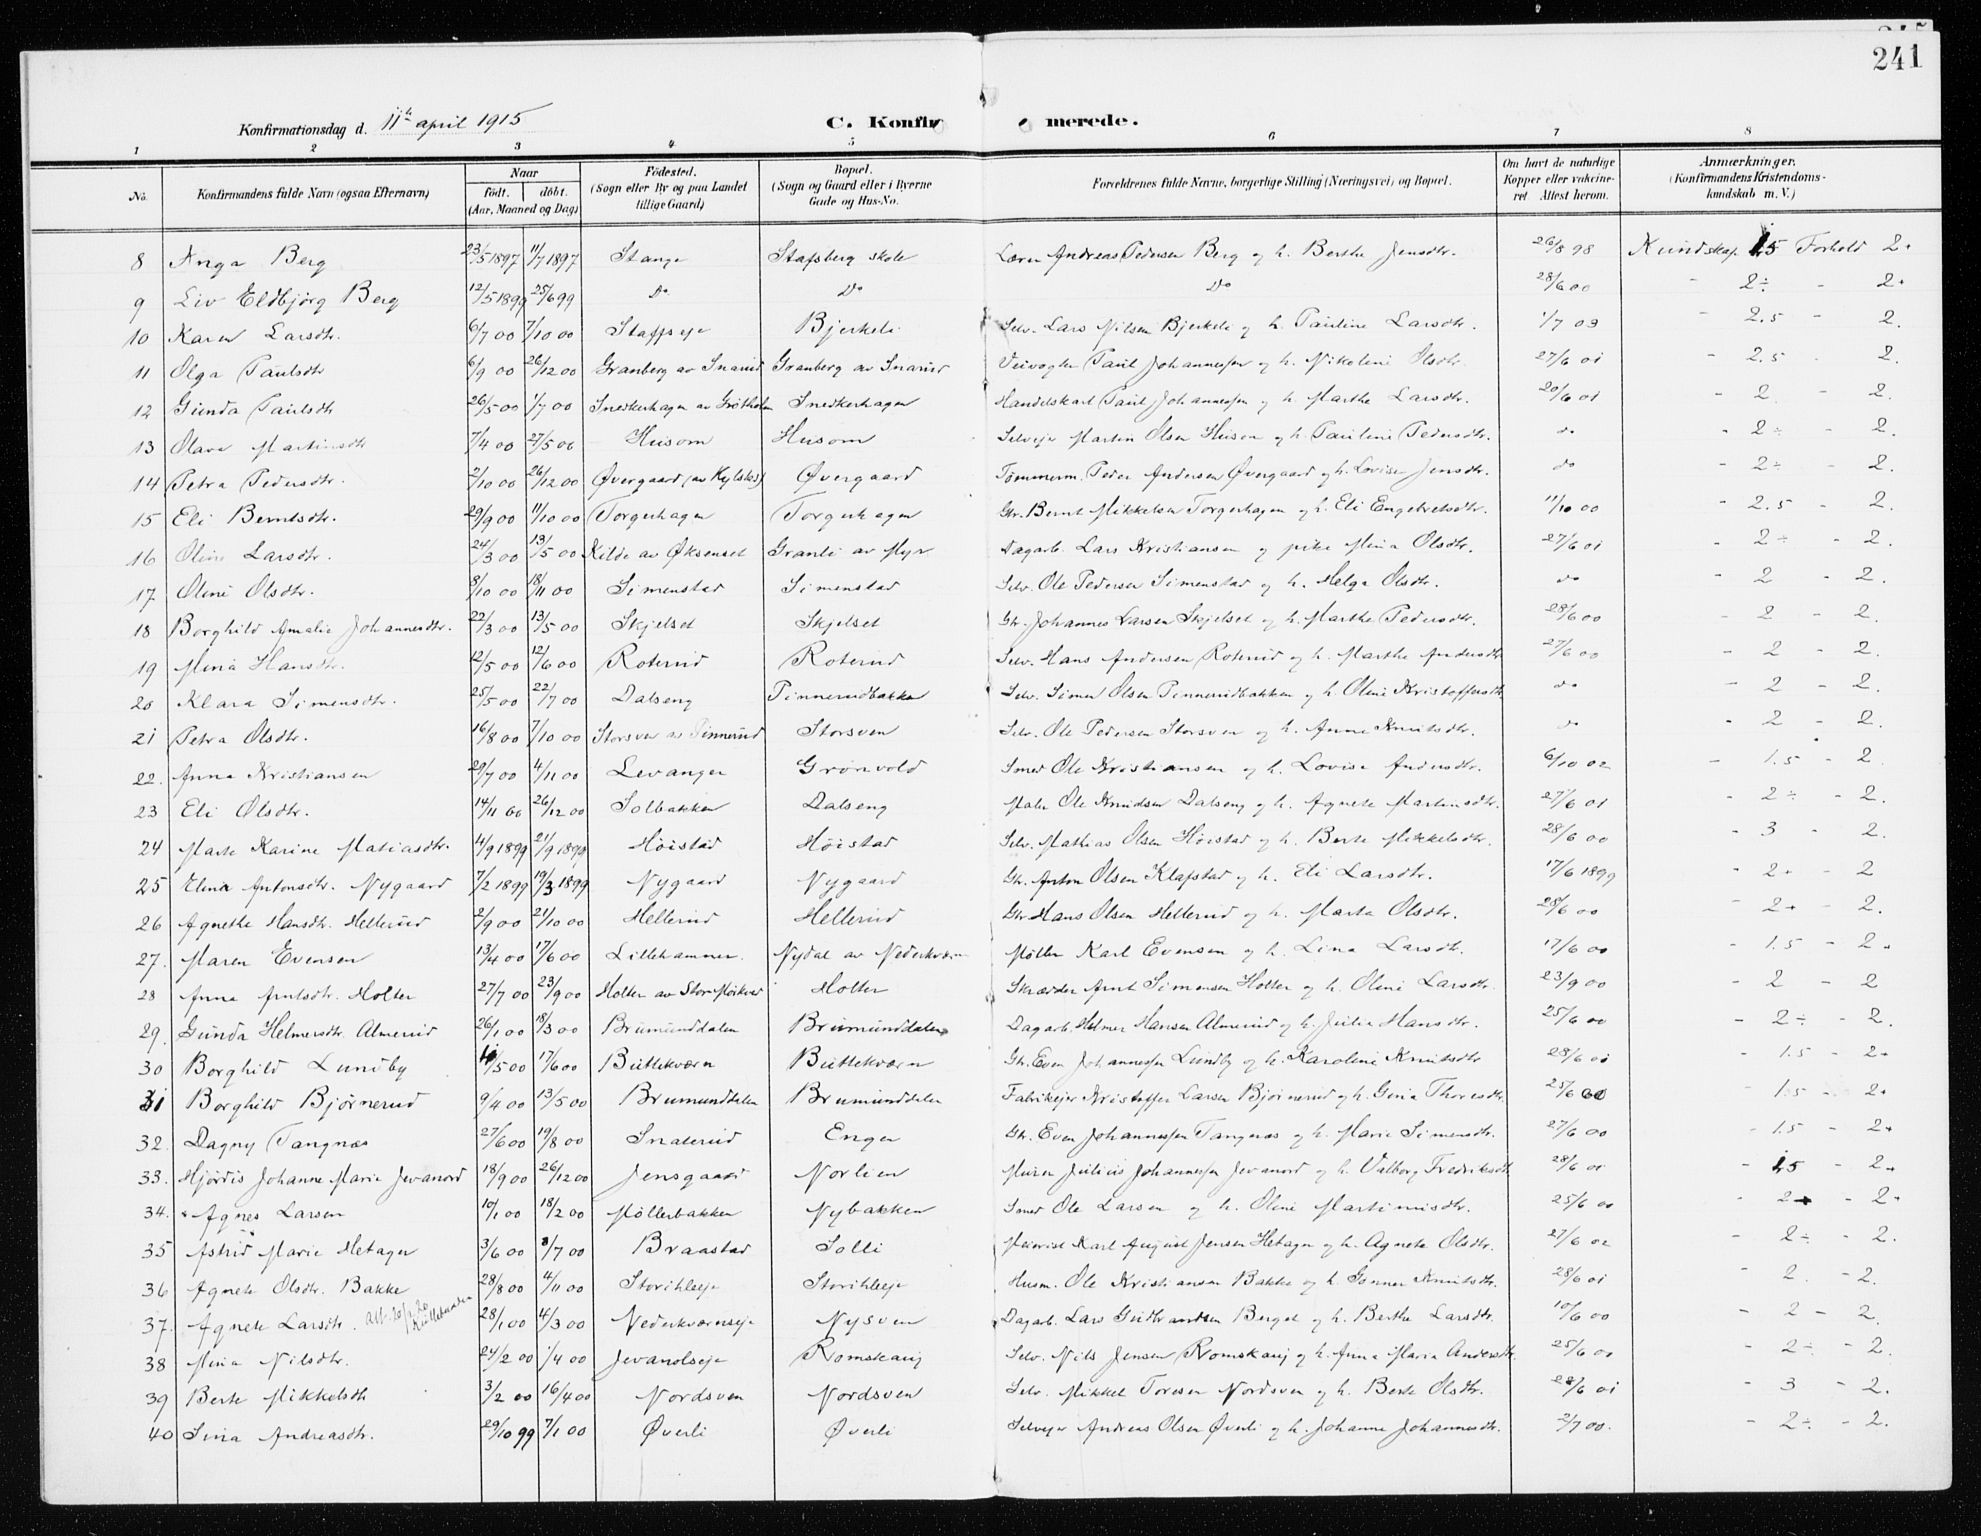 241
Konfirmationsdag d. 11te april 1915
C. Konfirmerede.
1 2 3 4 5 6 7 8
No. Konfirmandens fulde Navn (ogsaa Efternavn) Naar født. døbt. (Aar, Maaned og Dag) Fødested. (Sogn eller By og paa Landet tillige Gaard) Bopæl. (Sogn og Gaard eller i Byerne Gade og Hus-No. Forældrenes fulde Navne, borgerlige Stilling (Næringsvei) og Bopæl. Om havt de naturlige Kopper eller vakcineret Attest herom. Anmærkninger. (Konfirmandens Kristendomskundskab m. V.)
8 Inga Berg 23/5 1897 11/7 1897 Stange Stafsberg skole Lærer Andreas Pedersen Berg og h. Berthe Jensdtr. 26/8 98 Kundskap 1.5 Forhold 2+
9 Liv Eldbjörg Berg 12/5 1899 25/6 99 Do Do Do 28/6 00 - 2÷ - 2+
10 Karen Larsdtr. 6/7 00 7/10 00 Stafseje Bjerkeli Selv. Lars Nilsen Bjerkeli og h. Pauline Larsdtr. 1/7 03 - 2.5 - 2.
11 Olga Paulsdtr 6/9 00 26/12 00 Granberg av Snarud Granberg av Snarud Veivogter Paul Johannessen og h. Nikoline Olsdtr. 27/6 01 - 2.5 - 2.
12 Gunda Paulsdtr 26/5 00 1/7 00 Snedkerhagen av Grøtholm Snedkerhagen Handelskarl Paul Johannessen og h. Marthe Larsdtr. 20/6 01 - 2 - 2.
13 Olava Martinsdtr 7/4 00 27/5 00 Husom Husom Selvejer Martin Olsen Husom og h. Pauline Pedersdtr. do - 2÷ - 2.
14 Petra Pedersdtr. 2/10 00 26/12 00 Øvergaard (av Kylstad) Øvergaard Tømmerm. Peder Andersen Øvergaard og h. Lovise Jensdtr. do - 2÷ - 2.
15 Eli Berntsdtr. 29/9 00 11/10 00 Torgerhagen Torgerhagen Gbr. Bernt Mikkelsen Torgerhagen og h. Eli Engebretsdtr. 11/10 00 - 2.5 - 2.
16 Oline Larsdtr. 24/3 00 13/5 00 Kilde av Øksenset Granli av Myr Dagarb. Lars Kristiansen og pike Mina Olsdtr. 27/6 01 - 2÷ - 2.
17 Oline Olsdtr. 8/10 00 18/11 00 Simenstad Simenstad Selv. Ole Pedersen Simenstad og h. Helga Olsdtr. do - 2 - 2.
18 Borghild Amalie Johannesdtr. 22/3 00 13/5 00 Skjelset Skjelset Gbr. Johannes Larsen Skjelset og h. Marthe Pedersdtr. 28/6 00 - 2 - 2.
19 Mina Hansdtr. 12/5 00 12/6 00 Roterud Roterud Selv. Hans Andersen Roterud og h. Marthe Andersdtr 27/6 00 - 2 - 2.
20 Klara Simensdtr. 25/5 00 22/7 00 Dalseng Pinnerudbakke Selv. Simen Olsen Pinnerudbakken og h. Oline Kristoffersdtr do - 2 - 2.
21 Petra Olsdtr. 16/8 00 7/10 00 Storsven av Pinnerud Storsven Selv. Ole Pedersen Storsven og h. Anne Knutsdtr. do - 2 - 2.
22. Anna Kristiansen 29/7 00 4/11 00 Levanger Grønvold Smed Ole Kristiansen og h. Lovise Andersdtr. 6/10 02 - 1.5 - 2
23 Eli Olsdtr. 14/11 00 26/12 00 Solbakken Dalseng Maler Ole Knudsen Dalseng og h. Agnete Martinsdtr. 27/6 01 - 2÷ - 2.
24 Marte Karine Matiasdtr. 4/9 1899 21/9 1899 Høistad Høistad Selv. Mathias Olsen Høistad og h. Berte Mikkelsdtr. 28/6 00 - 3 - 2.
25 Elina Antonsdtr. Nygaard 7/2 1899 19/3 1899 Nygaard Nygaard Gbr. Anton Olsen Klapstad og h. Eli Larsdtr. 17/6 1899 - 2+ - 2
26 Agnethe Hansdtr. Hellerud 2/9 00 21/10 00 Hellerud Hellerud Gbr. Hans Olsen Hellerud og h. Marta Olsdtr. 28/6 00 - 2+ - 2.
27. Maren Evensen 13/4 00 17/6 00 Lillehammer. Nydal av Nederkværn Møller Karl Evensen og h. Lina Larsdtr. 17/6 00 - 1.5 - 2+
28 Anna Arntsdtr. Holter 27/7 00 23/9 00 Holter av Stor Mørkved Holter Skrædder Arnt Simensen Holter og h. Oline Larsdtr. 23/9 00 - 2 - 2
29. Gunda Helmersdtr. Almerud 26/1 00 18/3 00 Brumunddalen Brumunddalen Dagarb. Helmer Hansen Almerud og h. Julia Hansdtr. 25/6 00 - 2÷ - 2.
30 Borghild Lundby /5 00 17/6 00 Buttekværn Buttekværn Gbr. Even Johannessen Lundby og h. Karoline Knutsdtr 28/6 01 - 1.5 - 2+
31 Borghild Bjørnerud 9/4 00 13/5 00 Brumunddalen Brumunddalen Fabrikejer Kristoffer Larsen Bjørnerud og h. Gina Thoresdtr 25/6 00 - 1.5 - 2+
32. Dagny Tangnæs 27/6 00 19/8 00 Snaterud Enger Gbr. Even Johannessen Tangnæs og h. Marie Simensdtr. 27/6 00 - 1.5 - 2+
33. Hjørdis Johanne Marie Jevanord 18/9 00 26/12 00 Jensgaard Norlien Murer Julius Johannessen Jevanord og h. Valborg Fredriksdtr 28/6 01 - 1.5 - 2+
34. Agnes Larsen 10/1 00 18/2 00 Møllerbakken Nybakken Smed Ole Larsen og h. Oline Martinusdtr. 25/6 00 - 2+ - 2+
35 Astrid Marie Hetager 3/6 00 8/7 00 Braastad Solli Meierist Karl August Jensen Hetager og h. Agnete Olsdtr. 27/6 02 - 2÷ - 2.
36 Agnete Olsdtr. Bakke 28/8 00 4/11 00 Storihleeje Storihleeje Husm. Ole Kristiansen Bakke og h. Gunnor Knutsdtr. 28/6 01 - 2. - 2.
37. Agnete Larsdtr. att. 20/ 20 28/1 00 4/3 00 Nederkværnseje Nysven Dagarb. Lars Gulbrandsen Berget og h. Berthe Larsdtr. 10/6 00 - 2 - 2.
38 Mina Nilsdtr. 24/2 00 1/4 00 Jevanolseje Romskaug Selv. Nils Jensen Romskaug og h. Anna Maria Andersdtr. 25/6 00 - 2÷ - 2.
39 Berte Mikkelsdtr 3/2 00 16/4 00 Nordsven Nordsven Selv. Mikkel Toresen Nordsven og h. Berte Olsdtr. 28/6 01 - 3 - 2.
40 Sina Andreasdtr. 29/10 99 7/1 00 Øverli Øverli Selvejer Andreas Olsen Øverli og h. Johanne Johannesdtr. 2/7 00. - 2÷ - 2.